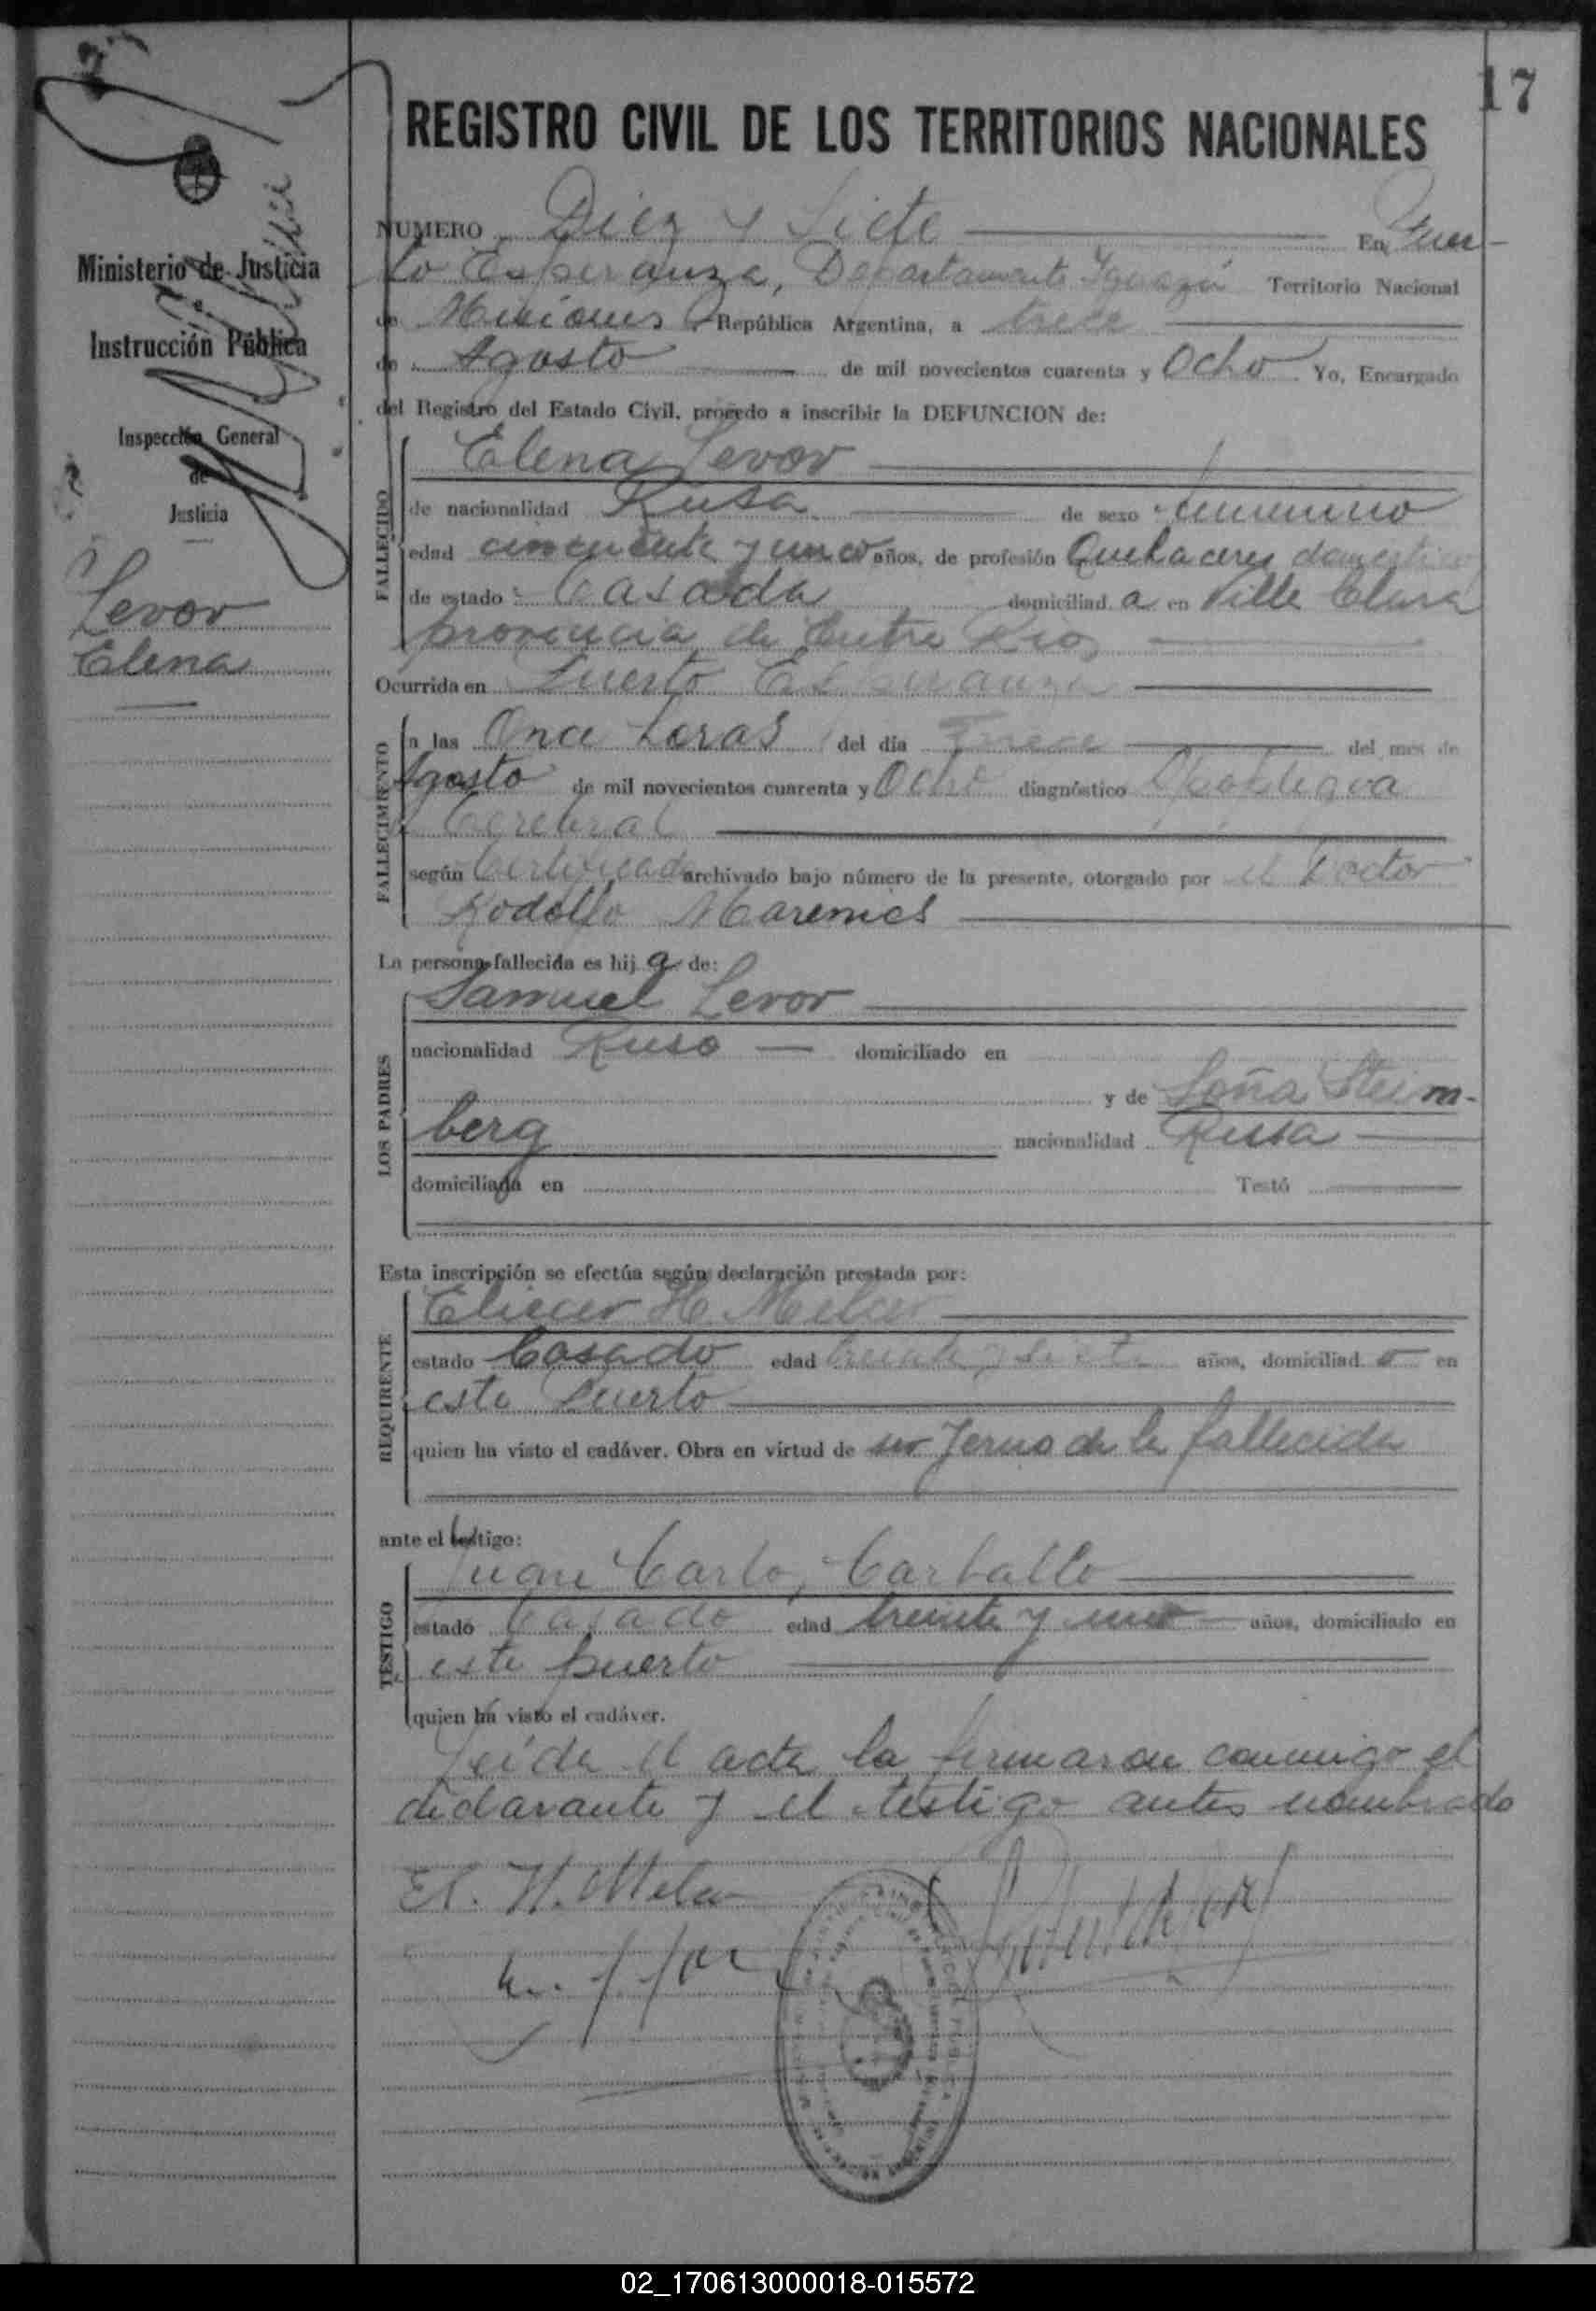 17
REGISTRO CIVIL DE LOS TERRITORIOS NACIONALES
Ministerio de Justicia
e
Instrucción Pública
Inspección General
de
Justicia
Levor
Elena
NUMERO Diez y Siete En Puer-
to Esperanza, Departamento Iguazú Territorio Nacional
de Misiones República Argentina, a trece
de Agosto de mil novecientos cuarenta y Ocho Yo, Encargado
del Registro del Estado Civil, procedo a inscribir la DEFUNCION de:
FALLECIDO
Elena Levor
de nacionalidad Rusa de sexo femenino
edad cincuenta y cinco años, de profesión Quehaceres domesticos
de estado Casada domiciliad a en Villa Clara
provincia de Entre Rios
Ocurrida en Puerto Esperanza
FALLECIMIENTO
a las Once horas del día Trece del mes de
Agosto de mil novecientos cuarenta y Ocho diagnóstico
Cerebral
según Certificado archivado bajo número de la presente, otorgado por el Doctor
Rodolfo
La persona fallecida es hij a de:
LOS PADRES
Samuel Levor
nacionalidad Ruso domiciliado en
y de Soña Steim-
berg nacionalidad Rusa
domiciliada en Testó
Esta inscripción se efectúa según declaración prestada por:
REQUIRENTE
Eliecer H. Melcer
estado Casado edad treinta y siete años, domiciliad o en
este Puerto
quien ha visto el cadáver. Obra en virtud de ser Yerno de la fallecida
ante el testigo:
TESTIGO
Juan Carlos Carballo
estado Casado edad treinta y uno años, domiciliado en
este puerto
quien ha visto el cadáver.
Leida el acta la firmaron conmigo el
declarante y el testigo antes nombrado
El. H. Melcer
02_170613000018-015572